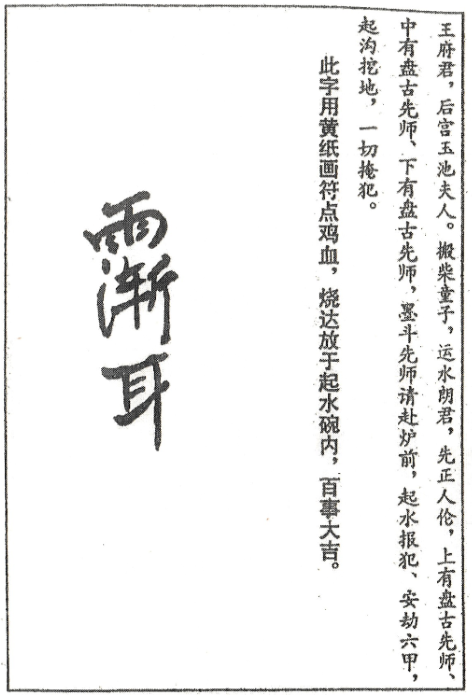 王府君，后宫玉池夫人。搬柴童子，运水朗君，先正人伦，上有盘古先师、
中有盘古先师、下有盘古先师，墨斗先师请赴炉前，起水报犯、安劫六甲，
起沟挖地，一切掩犯。
此字用黄纸画符点鸡血，烧达放于起水碗内，百事大吉。